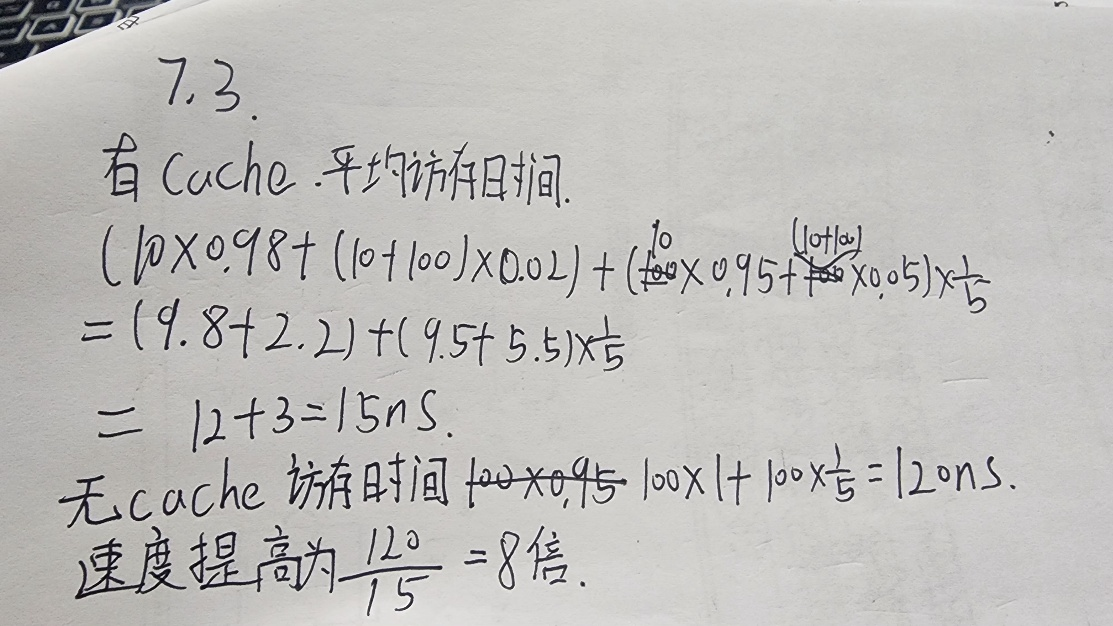 7.3.
有Cache.平均访存时间.
(10×0.98+(10+100)×0.02)+(10×0.95+(10+100)×0.05)×1/5
=(9.8+2.2)+(9.5+5.5)×1/5
= 12+3=15ns.
无cache访存时间 100×0.95 100×1+100×1/5=120ns.
速度提高为 120/15 =8倍.